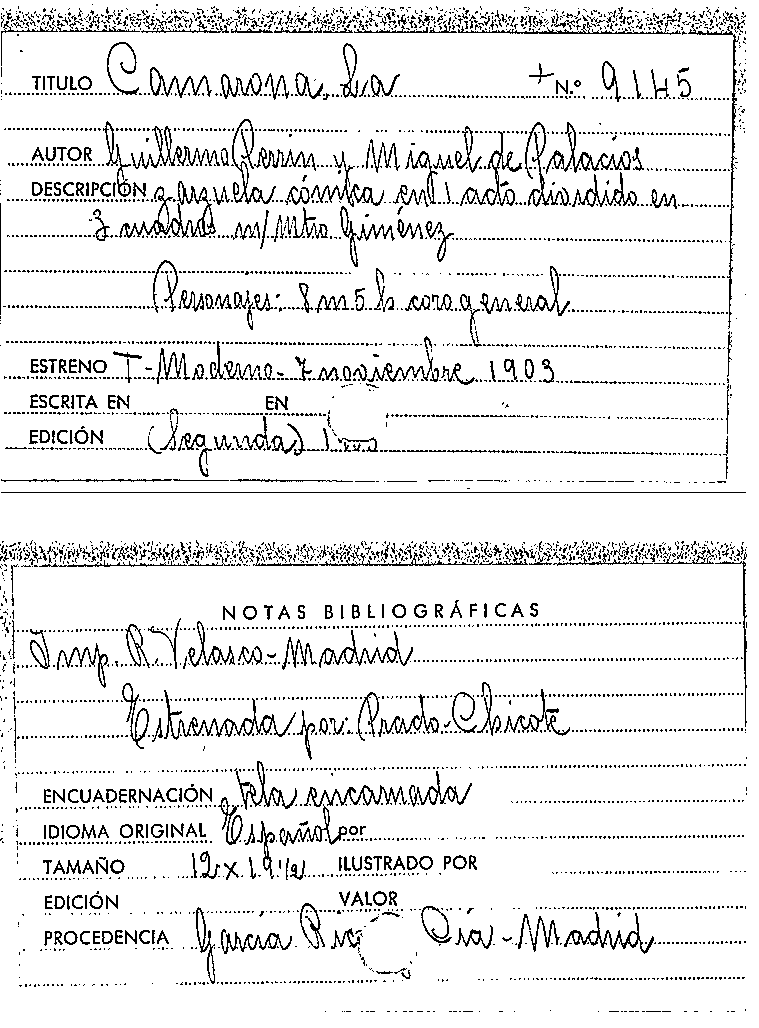 TITULO Camarona, La + N.º 9145
AUTOR Guillermo Perrin y Miguel de Palacios
DESCRIPCIÓN zarzuela cómica en 1 acto dividido en
3 cuadros m/ Mtro Giménez
Personajes: 8 m 5 h coro general
ESTRENO T- Moderno - 7 noviembre 1903
ESCRITA EN EN
EDICIÓN (Segunda)
NOTAS BIBLIOGRÁFICAS
Imp. R. Velasco - Madrid
Estrenada por: Prado-Chicote
ENCUADERNACIÓN tela encarnada
IDIOMA ORIGINAL Español por
TAMAÑO 12 x 19 1/2 ILUSTRADO POR
EDICIÓN VALOR
PROCEDENCIA García Rico Cía - Madrid